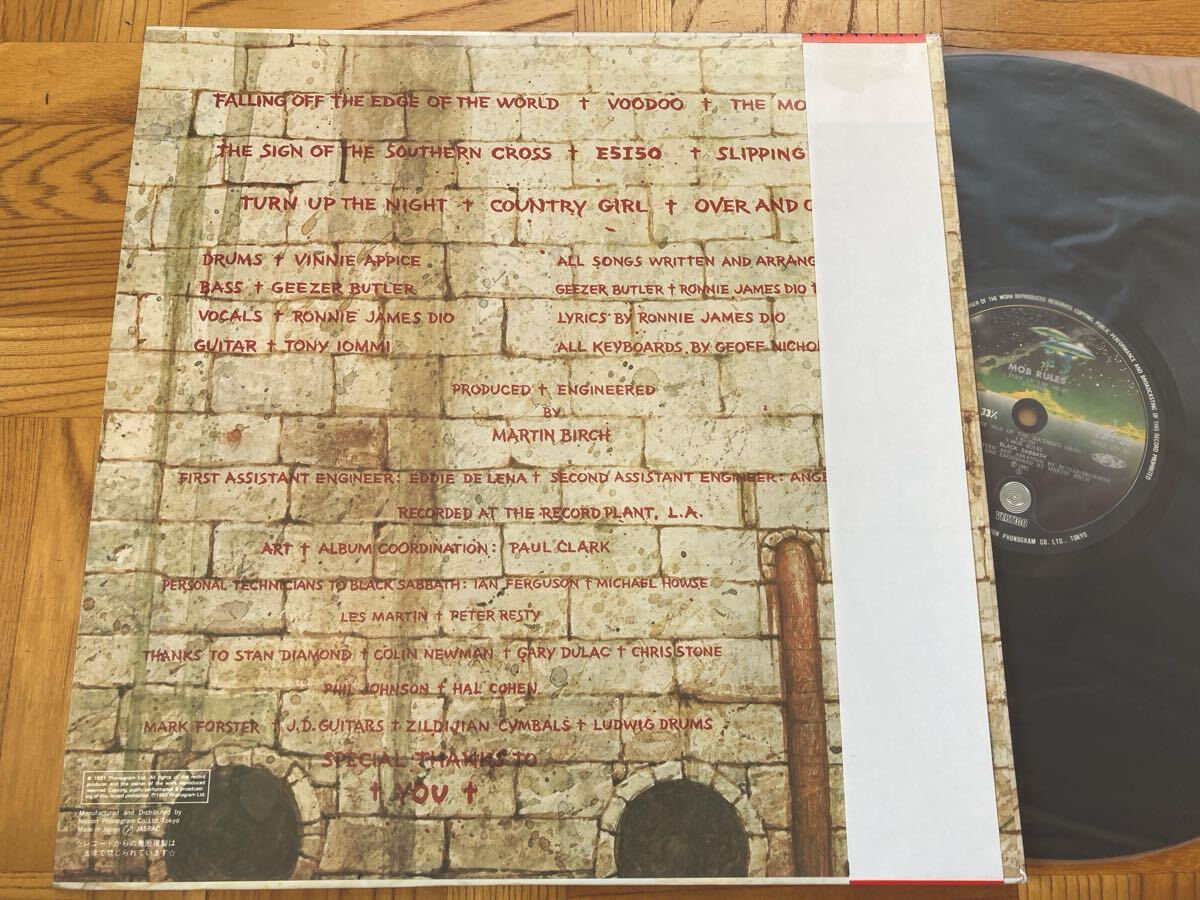 FALLING OFF THE EDGE OF THE WORLD † VOODOO † THE MO
THE SIGN OF THE SOUTHERN CROSS † E5150 † SLIPPING
TURN UP THE NIGHT † COUNTRY GIRL † OVER AND O
DRUMS † VINNIE APPICE
BASS † GEEZER BUTLER
VOCALS † RONNIE JAMES DIO
GUITAR † TONY IOMMI
ALL SONGS WRITTEN AND ARRANG
GEEZER BUTLER † RONNIE JAMES DIO †
LYRICS BY RONNIE JAMES DIO
ALL KEYBOARDS BY GEOFF NICHO
PRODUCED † ENGINEERED
BY
MARTIN BIRCH
FIRST ASSISTANT ENGINEER: EDDIE DE LENA † SECOND ASSISTANT ENGINEER: ANGE
RECORDED AT THE RECORD PLANT, L.A.
ART † ALBUM COORDINATION: PAUL CLARK
PERSONAL TECHNICIANS TO BLACK SABBATH: IAN FERGUSON † MICHAEL HOWSE
LES MARTIN † PETER RESTY
THANKS TO STAN DIAMOND † COLIN NEWMAN † GARY DULAC † CHRIS STONE
PHIL JOHNSON † HAL COHEN
MARK FORSTER † J.D. GUITARS † ZILDIJIAN CYMBALS † LUDWIG DRUMS
SPECIAL THANKS TO
† YOU †
℗ 1981 Phonogram Ltd. All rights of the record
producer and the owner of the work reproduced
reserved. Copying, public performance & broadcast-
ing of this record prohibited. © 1981 Phonogram Ltd.
Manufactured and Distributed by
Nippon Phonogram Co., Ltd. Tokyo
Made in Japan Ⓟ JASRAC
☆レコードからの無断複製は
法律で禁じられています☆
OF THE WORK REPRODUCED RESERVED COPYING, PUBLIC PERFORMANCE AND BROADCASTING OF THIS RECORD PROHIBITED
MOB RULES
33⅓
SIGN OF THE SOUTHERN CROSS
BLACK SABBATH
AND ENGINEERED BY MARTIN BIRCH
℗ 1981
VERTIGO
PHONOGRAM CO. LTD., TOKYO